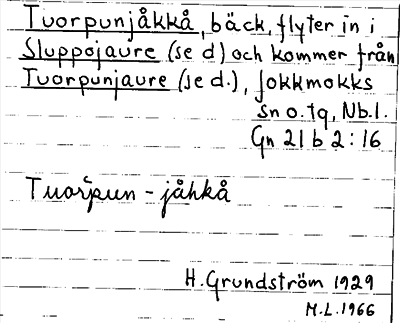 Tuorpunjåkkå, bäck, flyter in i
Sluppojaure (se d) och kommer från
Tuorpunjaure (se d.), Jokkmokks
sn o. tq, Nb.l.
Gn 21 b 2:16
Tuor̆pun - jåhkå
H. Grundström 1929
M.L. 1966